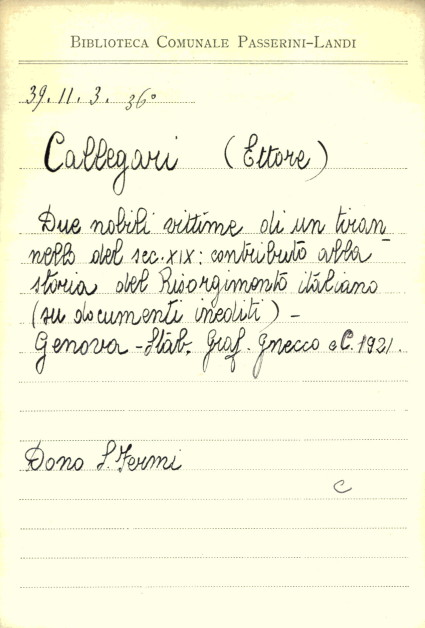 BIBLIOTECA COMUNALE PASSERINI-LANDI
39. 11. 3. 36°
Callegari (Ettore)
Due nobili vittime di un tiran_
nello del sec. XIX: contributo alla
storia del Risorgimento italiano
(su documenti inediti) -
Genova - Stab. Graf. Gnecco e C. 1921.
Dono S. Fermi
C